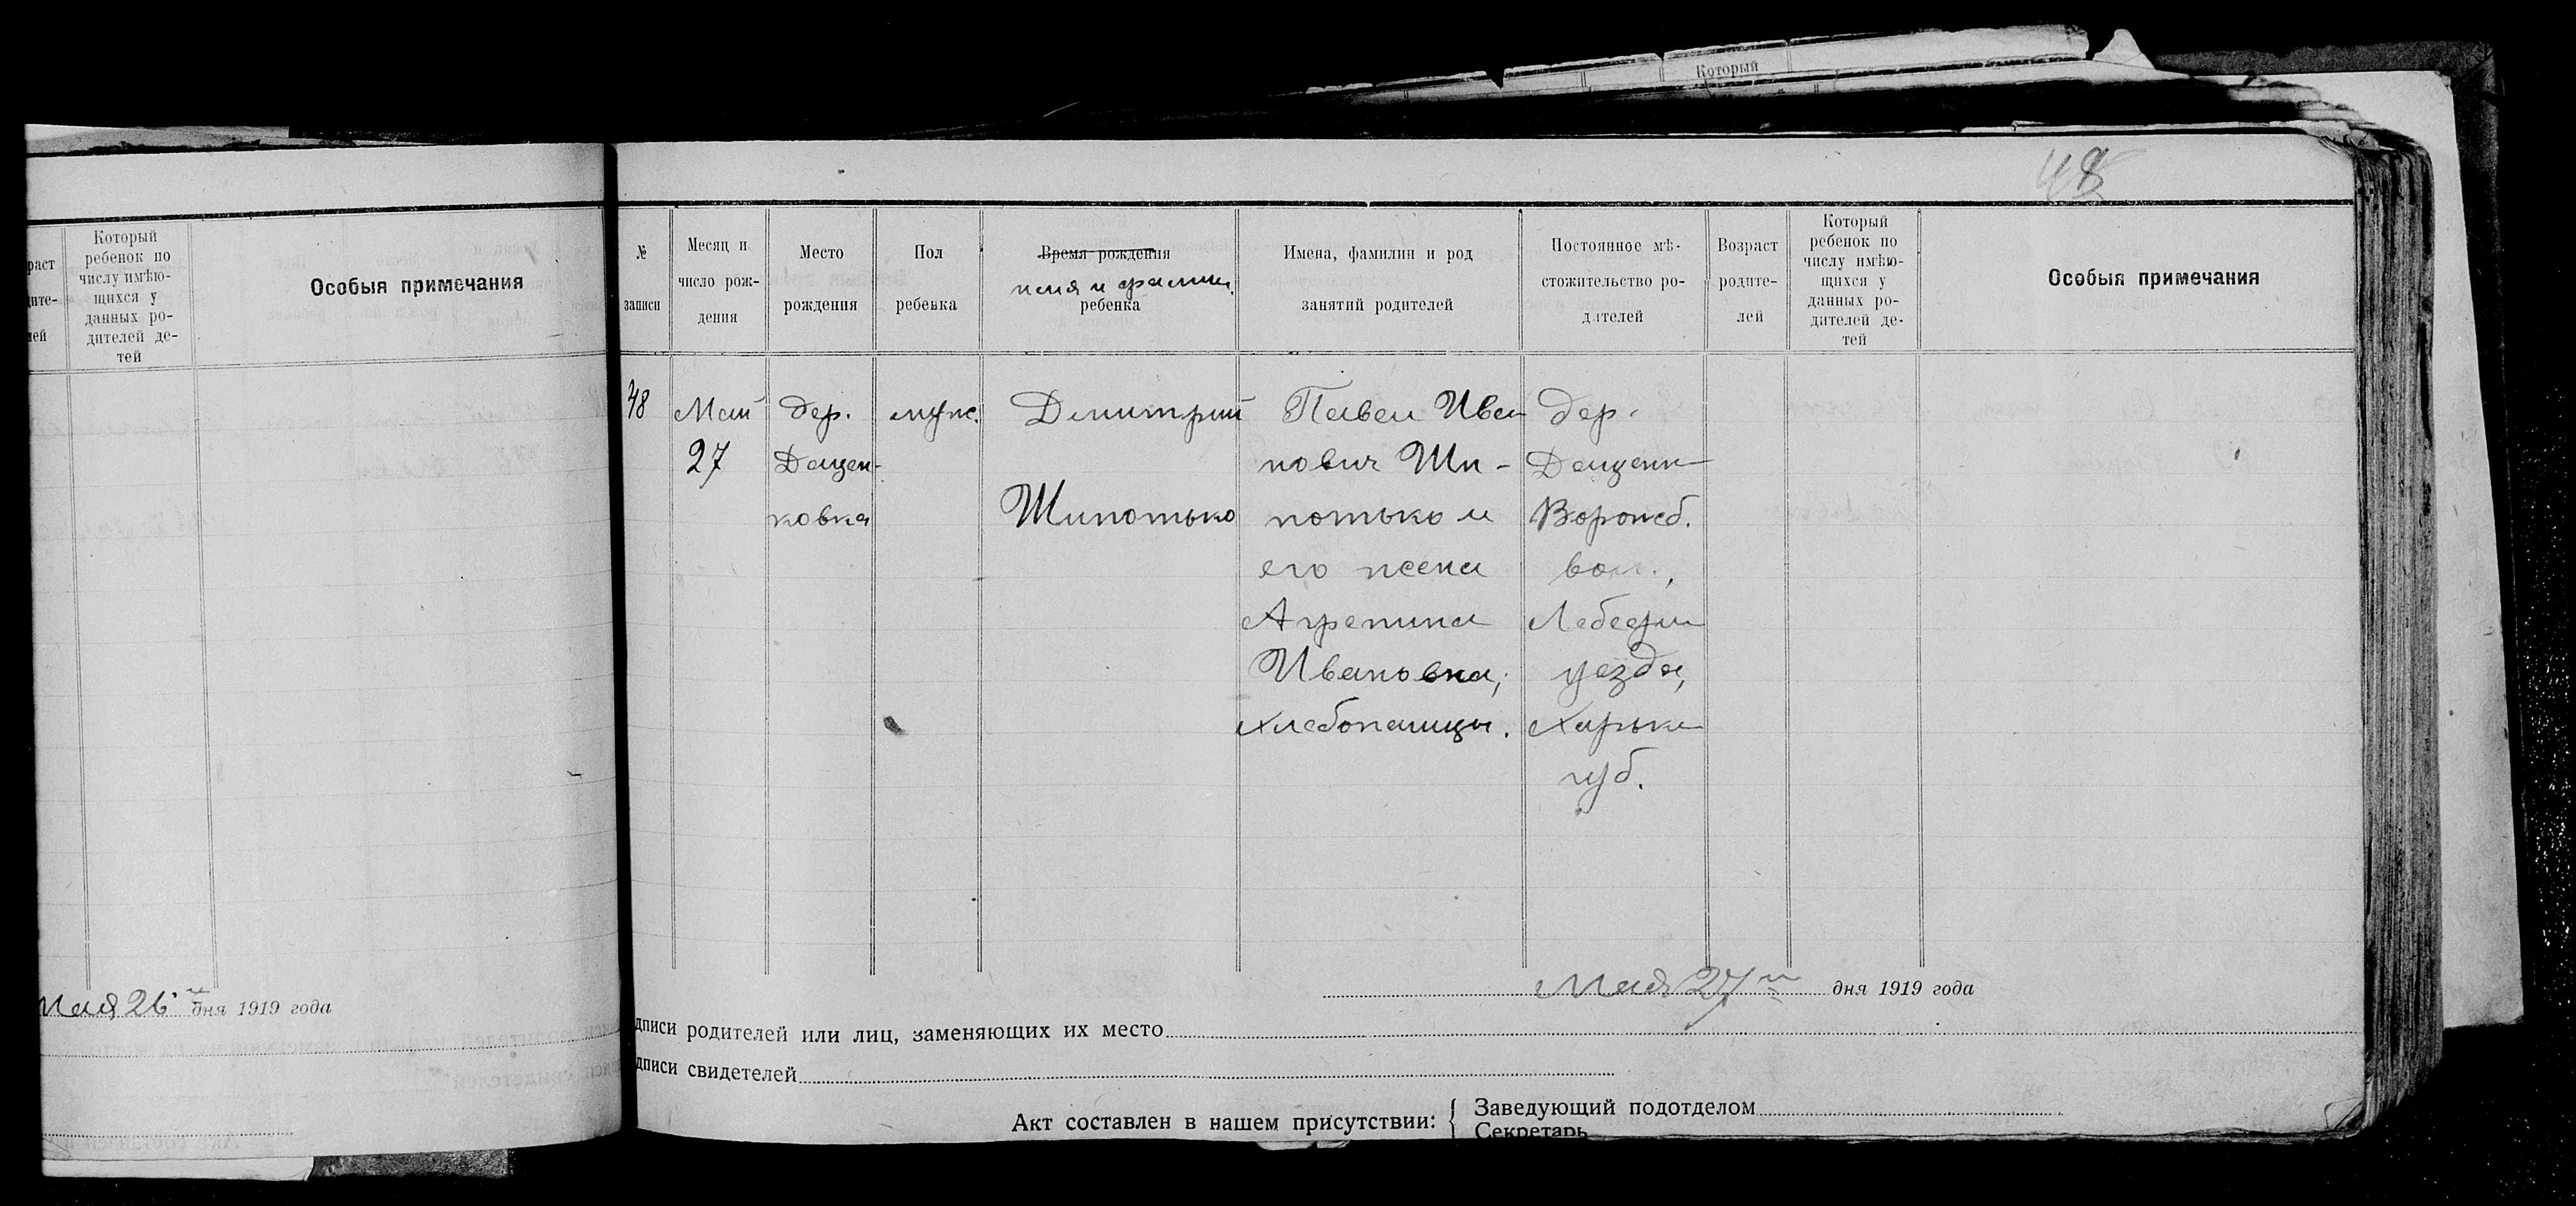 Который
48
раст
дите-
лей
Который
ребенок по
числу имѣю-
щихся у
данных ро-
дителей де-
тей
Особыя примечания
Мая 26 дня 1919 года
№
записи
Месяц и
число рож-
дения
Место
рождения
Пол
ребенка
Время рождения
имя и фамил.
ребенка
Имена, фамилии и род
занятий родителей
Постоянное мѣ-
стожительство ро-
дителей
Возраст
родите-
лей
Который
ребенок по
числу имѣю-
щихся у
данных ро-
дителей де-
тей
Особыя примечания
48
Май
27
дер.
Дацен-
ковка
муж.
Димитрий
Шипотько
Павел Ива
нович Ши-
потько и
его жена
Агрепина
Ивановна,
хлебопашцы.
дер.
Даценк
Ворожб.
вол.,
Лебедин
уезда,
Харьк
губ.
Мая 27 дня 1919 года
дписи родителей или лиц, заменяющих их место
дписи свидетелей
Акт составлен в нашем присутствии:
Заведующий подотделом
Секретарь